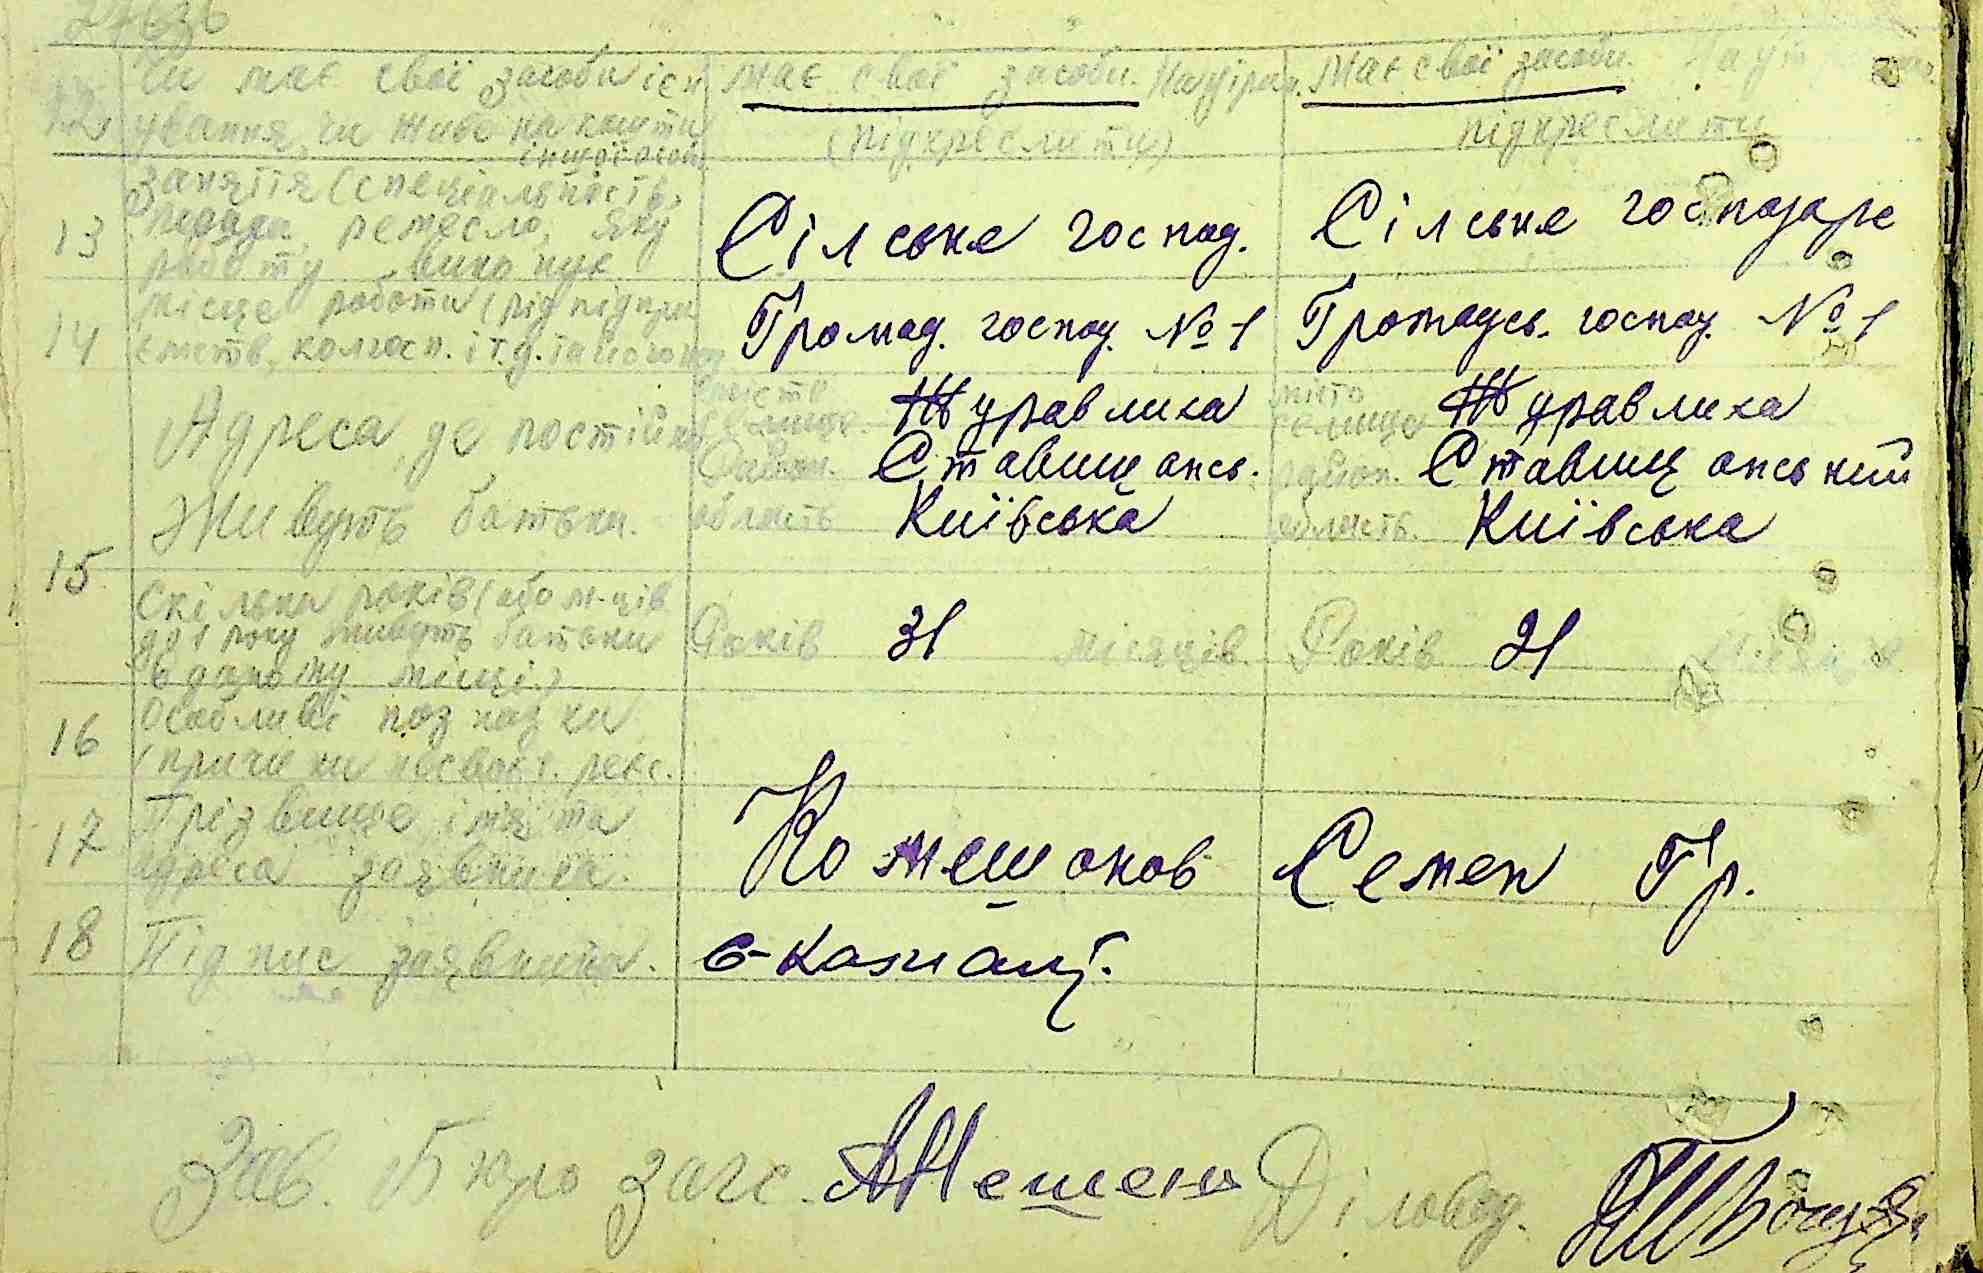 12 Чи має свої засоби існ має свої засоби. На утрим. Має свої засоби. На ут
ування, чи живе на кошти (підкреслити) підкреслити
іншої особи
заняття (спеціальність,
13 посада, ремесло, яку Сілське господ. Сілське господарс
роботу виконує
14 місце роботи (рід підпри Громад. господ. № 1 Громадсь. господ. № 1
ємств, колгосп. і т.д.
Адреса де постійно селище Журавлиха місто селище Журавлиха
Район. Ставищансь. район. Ставищанський
живуть батьки. область Київська область. Київська
15 Скільки років (або м-ців
до 1 року живуть батьки Років 31 місяців. Років 21
в даному місці.)
16 Особливі познаки
(причини несвоєч. реєс.
17 Прізвище, імя та
адреса заявника. Комешонов Семен Гр.
18 Підпис заявника.
Зав. Бюро загс. Діловод.